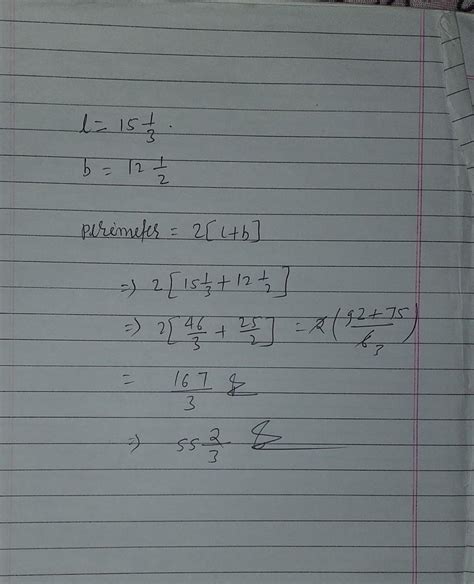 l = 15 1/3 .
b = 12 1/2
perimeter = 2[l+b]
=) 2[15 1/3 + 12 1/2]
=) 2[46/3 + 25/2] = 2(92+75/6 3)
= 167/3
=) 55 2/3